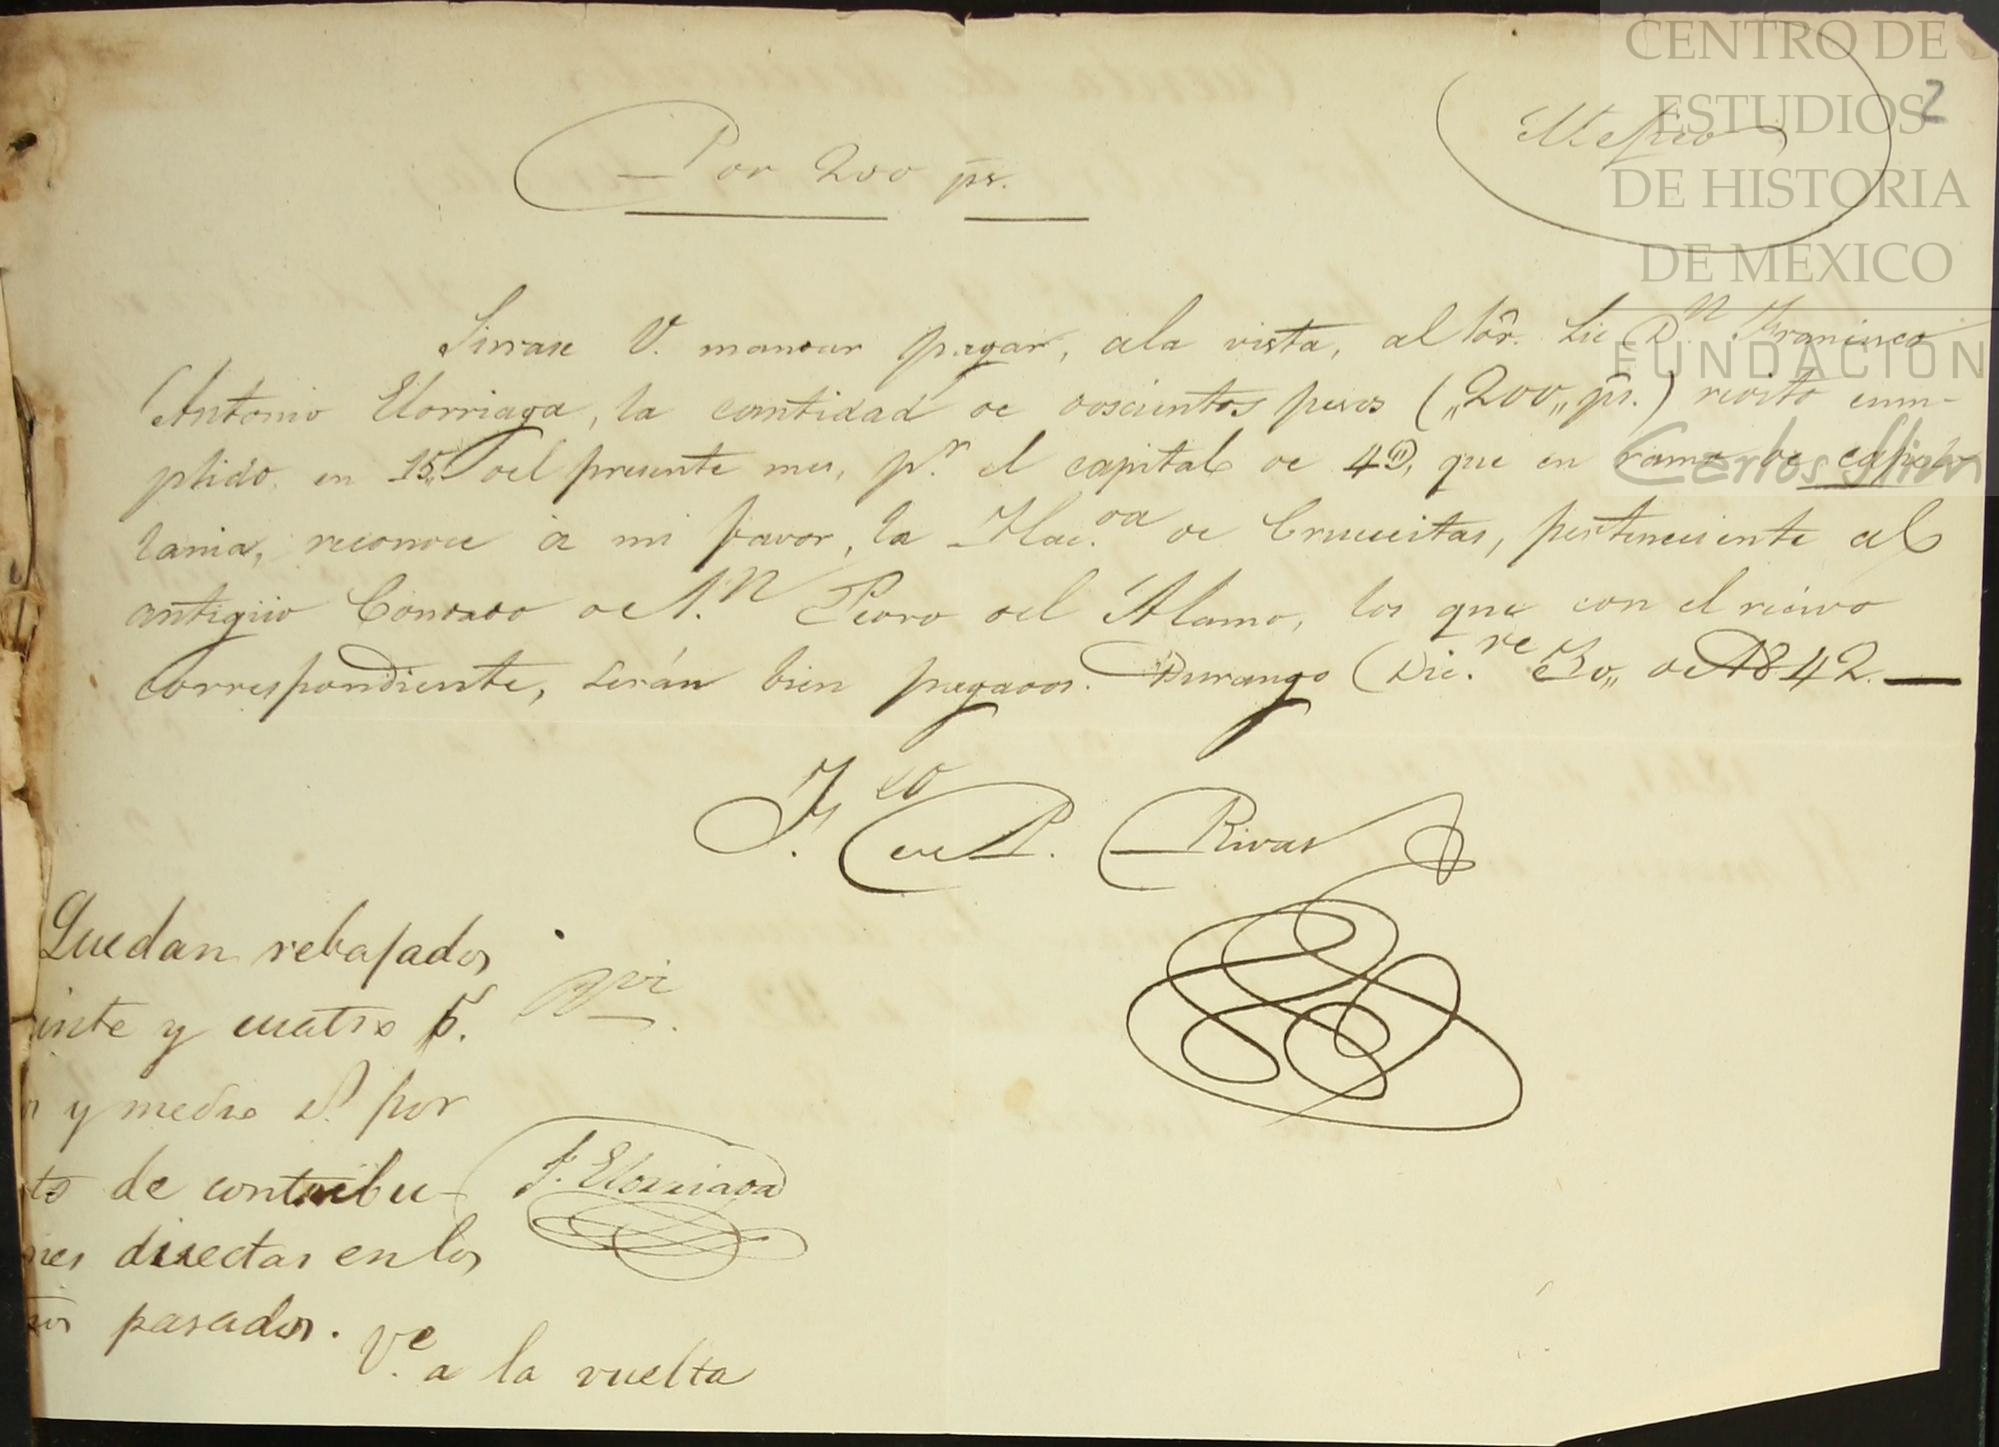 2
Por 200 ps.
Sirvase V. mandar pagar, ala vista, al Sôr. Lic D.n Francisco
Antonio Elorriaga, la cantidad de doscientos pesos („200„ ps.) redito cum-
plido en 15„ del presente mes, p.r el capital de 4D, que en ramo de capel-
lania, reconoce á mi favor, la Hac.da de Crucecitas, perteneciente al
antigüo Condado de S.n Pedro del Alamo, los que con el recivo
correspondiente, serán bien pagados. Durango Dic.re 30„ de 1842.—
F.co de P. Rivas
Quedan rebajados
inte y cuatro ps.
y medio r.l por
to de contribu-
nes directas en los
pasados.
F. Elorriaga
V.e a la vuelta
CENTRO DE
ESTUDIOS
DE HISTORIA
DE MÉXICO
FUNDACIÓN
Carlos Slim